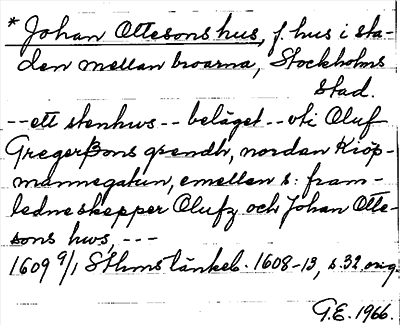 * Johan Ottesons hus, f. hus i sta-
den mellan broarna, Stockholms
stad.
-- ett stenhws -- beläget -- vti Oluf
Gregerßons grendh, nordan Kiöp-
mannegatun, emellen s: fram-
ledne skepper Olufz och Johan Otte-
sons hws, ---
1609 9/1 Sthms tänkeb. 1608-13, s. 32 orig.
G.E. 1966.